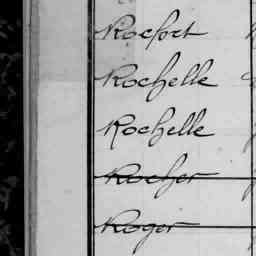 Rocfort
Rochelle
Rochelle
Rocher
Roger